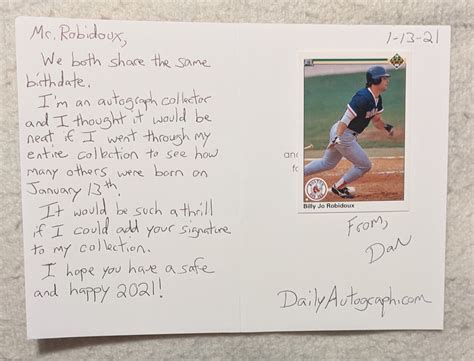 Mr. Robidoux,
We both share the same
birthdate.
I'm an autograph collector
and I thought it would be
neat if I went through my
entire collection to see how
many others were born on
January 13th.
It would be such a thrill
if I could add your signature
to my collection.
I hope you have a safe
and happy 2021!
1-13-21
Billy Jo Robidoux
From,
Dan
DailyAutograph.com